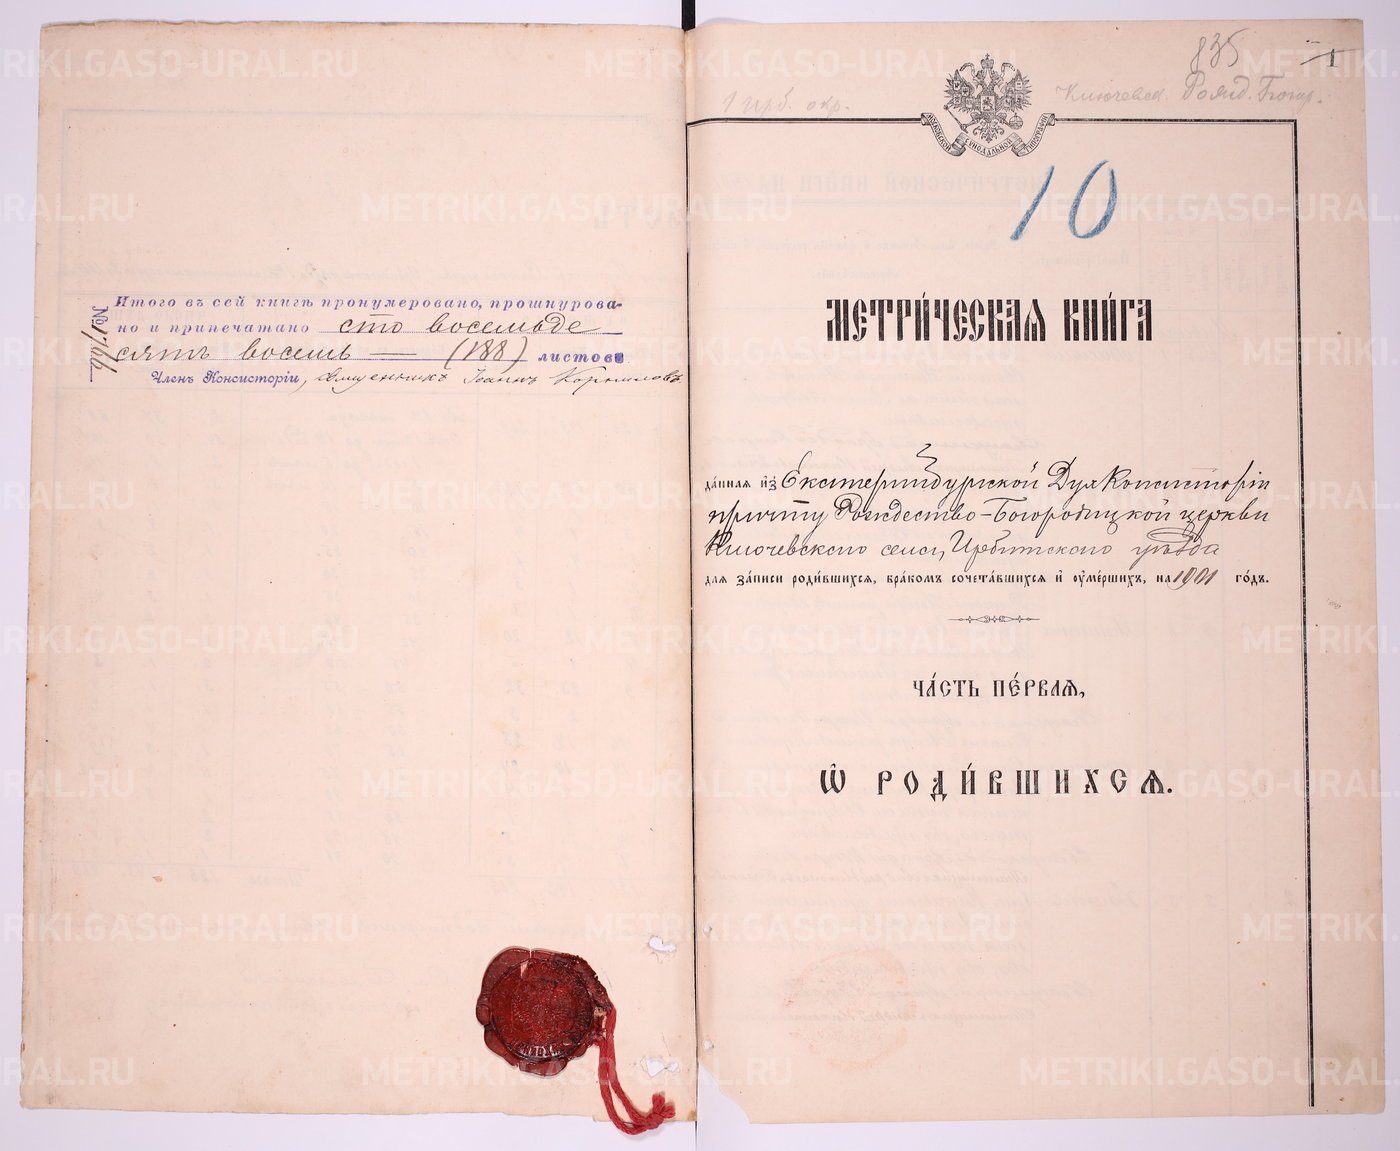 Итого въ сей книгѣ пронумеровано, прошнурова-
но и припечатано сто восемьде
сятъ восемь — (188) листовъ.
Членъ Консисторіи, священникъ Іоаннъ Корниловъ
835
1
1 Ирб. окр.
Ключевск. Рожд. Богор.
МОСКОВСКОЙ СИНОДАЛЬНОЙ ТИПОГРАФІИ
10
МЕТРИ́ЧЕСКАѦ КНИ́ГА
да́нная и҆з̾ Екатеринбургской Дух Консисторіи
причту Рождество-Богородицкой церкви
Ключевского села, Ирбитского уѣзда
для за́писи роди́вшихсѧ, бра́комъ сочета́вшихсѧ и҆ ᲂу҆ме́ршихъ, на 1901 го́дъ.
ЧА́СТЬ ПЕ́РВАѦ,
Ѡ҆ РОДИ́ВШИХСѦ.
METRIKI.GASO-URAL.RU